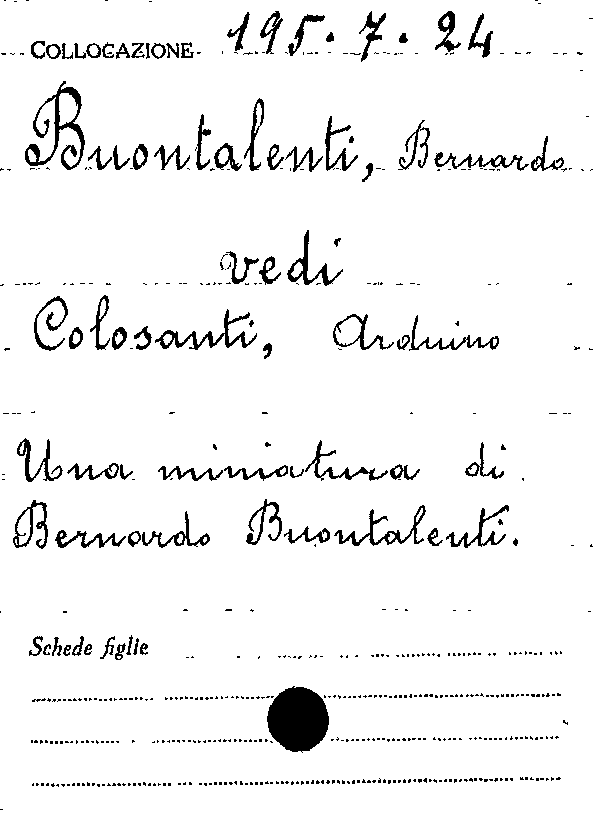 COLLOCAZIONE 195.7.24
Buontalenti, Bernardo
vedi
Colosanti, Arduino
Una miniatura di
Bernardo Buontalenti.
Schede figlie